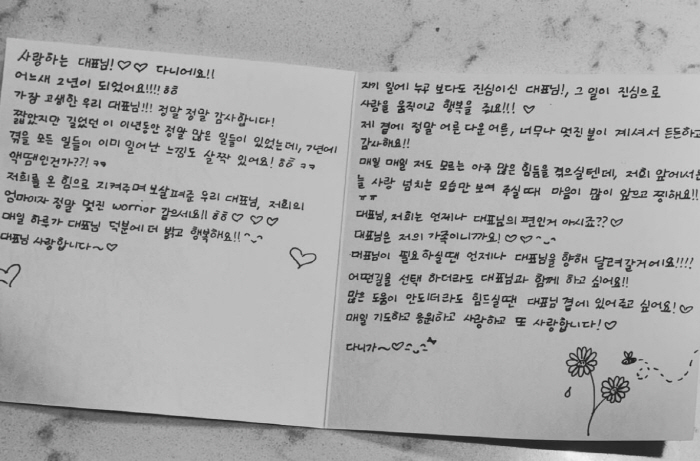 사랑하는 대표님!♡♡ 다니에요!!
어느새 2년이 되었어요!!!! ㅎㅎ
가장 고생한 우리 대표님!!! 정말 정말 감사합니다!
짧았지만 길었던 이 이년동안 정말 많은 일들이 있었는데, 7년에
겪을 모든 일들이 이미 일어난 느낌도 살짝 있어요! ㅎㅎ ㅋㅋ
액땜인건가??! ㅋㅋ
저희를 온 힘으로 지켜주며 보살펴준 우리 대표님, 저희의
엄마이자 정말 멋진 worrior 같으세요!! ㅎㅎ♡ ♡ ♡
매일 하루가 대표님 덕분에 더 밝고 행복해요!! ^_^
대표님 사랑합니다~♡
자기 일에 누구 보다도 진심이신 대표님!, 그 일이 진심으로
사람을 움직이고 행복을 줘요!!! ♡
제 곁에 정말 어른 다운 어른, 너무나 멋진 분이 계셔서 든든하고
감사해요!!
매일 매일 저도 모르는 아주 많은 힘듦을 겪으실텐데, 저희 앞에서는
늘 사랑 넘치는 모습만 보여 주실때 마음이 많이 아프고 찡해요!!
ㅠㅠ
대표님, 저희는 언제나 대표님의 편인거 아시죠??♡
대표님은 저의 가족이니까요! ♡♡^_^
대표님이 필요하실땐 언제나 대표님을 향해 달려갈거에요!!!!
어떤길을 선택 하더라도 대표님과 함께 하고 싶어요!!
많은 도움이 안되더라도 힘드실땐 대표님 곁에 있어주고 싶어요!♡
매일 기도하고 응원하고 사랑하고 또 사랑합니다!♡
다니가~♡^_^